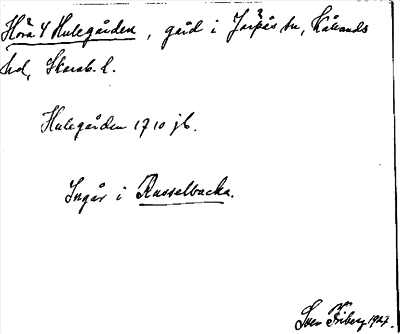 Höra 4 Hulegården, gård i Järpås sn, Kållands
hd, Skarab. l.
Hulegården 1710 jb.
Ingår i Russelbacka.
Sven Friberg 1927.